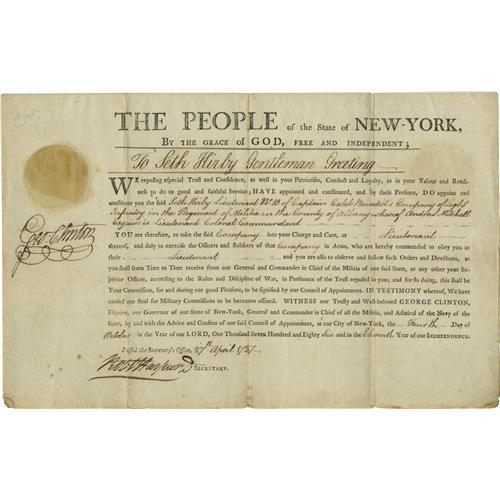 THE PEOPLE of the State of NEW-YORK,
BY THE GRACE OF GOD, FREE AND INDEPENDENT;
To Seth Kirby Gentleman Greeting
WE repoſing eſpecial Truſt and Confidence, as well in your Patriotiſm, Conduct and Loyalty, as in your Valour and Readi-
neſs to do us good and faithful Service; HAVE appointed and conſtituted, and by theſe Preſents, DO appoint and
conſtitute you the ſaid Seth Kirby Lieutenant of Captain Caleb Benedict's Company of Light
Infantry in the Regiment of Militia in the County of Albany whereof Andrew Mitchell
Esquire is Lieutenant Colonel Commandant
YOU are therefore, to take the ſaid Company into your Charge and Care, as Lieutenant
thereof, and duly to exerciſe the Officers and Soldiers of that Company in Arms, who are hereby commanded to obey you as
their Lieutenant and you are alſo to obſerve and follow ſuch Orders and Directions, as
you ſhall from Time to Time receive from our General and Commander in Chief of the Militia of our ſaid State, or any other your Su-
perior Officer, according to the Rules and Diſcipline of War, in Purſuance of the Truſt repoſed in you; and for ſo doing, this ſhall be
your Commiſſion, for and during our good Pleaſure, to be ſignified by our Council of Appointment. IN TESTIMONY whereof, We have
cauſed our Seal for Military Commiſſions to be hereunto affixed. WITNESS our Truſty and Well-beloved GEORGE CLINTON,
Eſquire, our Governor of our State of New-York, General and Commander in Chief of all the Militia, and Admiral of the Navy of the
State, by and with the Advice and Conſent of our ſaid Council of Appointment, at our City of New-York, the fourth Day of
October in the Year of our LORD, One Thouſand Seven Hundred and Eighty ſix and in the Eleventh Year of our INDEPENDENCE.
Geo Clinton
Paſſed the Secretary's Office, 27th April 1787.
Robt Harpur D SECRETARY.